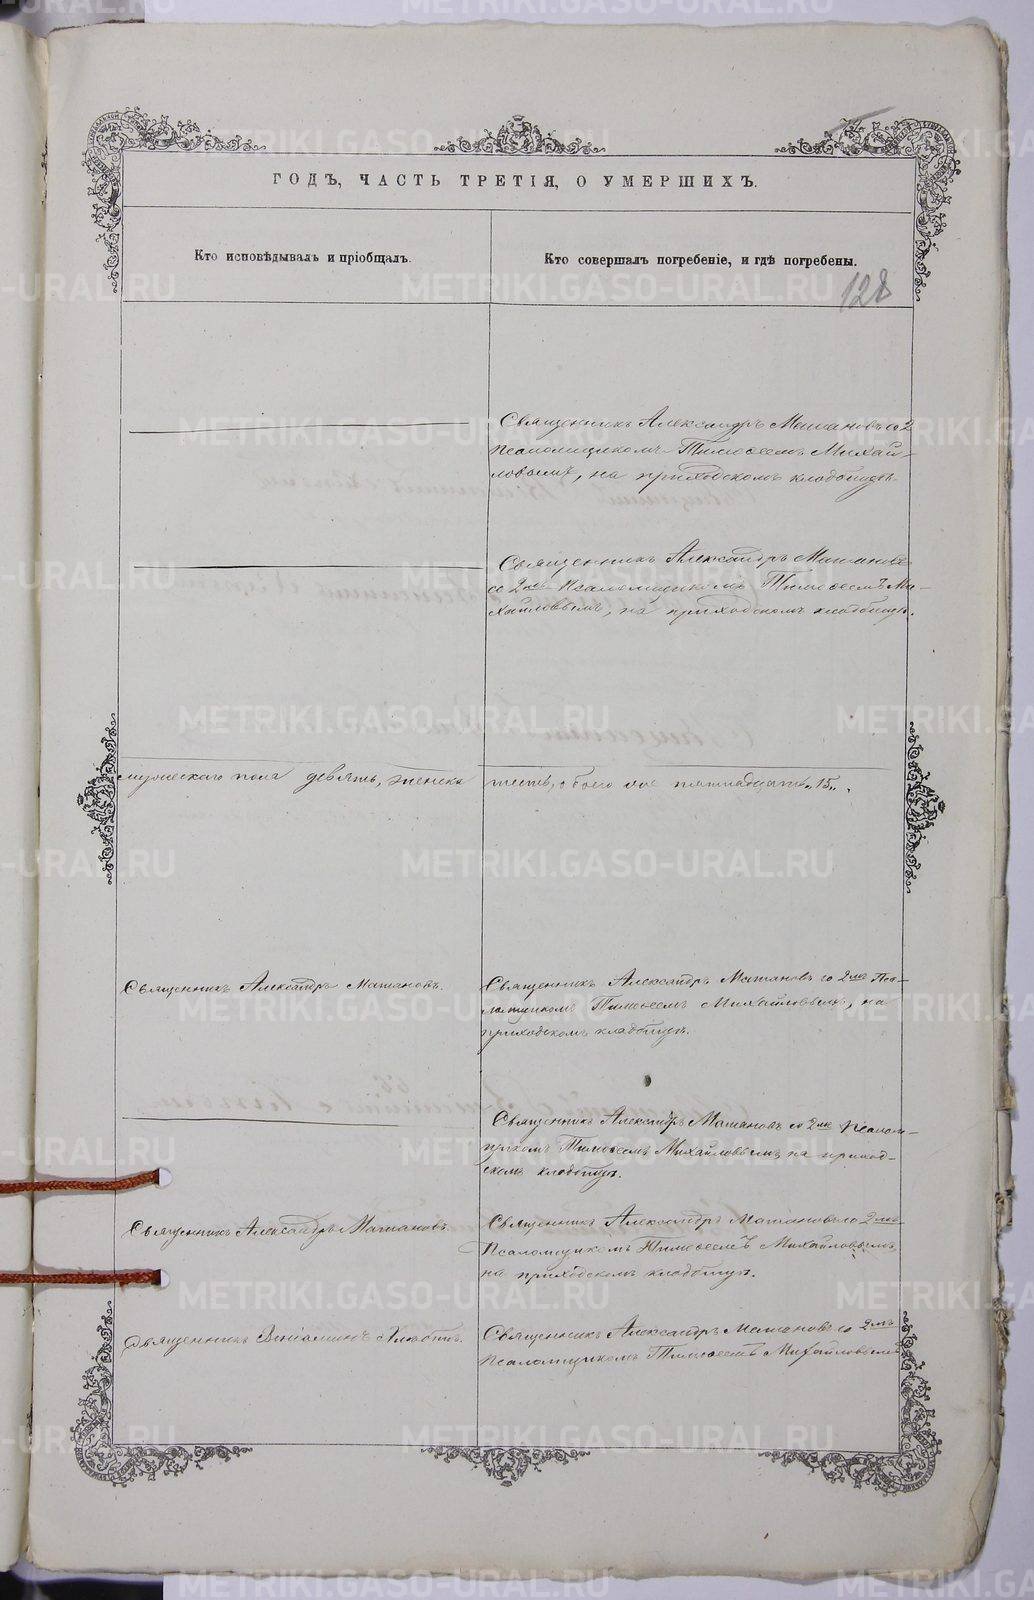 ГОДЪ, ЧАСТЬ ТРЕТІЯ, О УМЕРШИХЪ.
Кто исповѣдывалъ и пріобщалъ.
Кто совершалъ погребеніе, и гдѣ погребены.
128
Священникъ Александръ Матановъ со 2
Псаломщикомъ Тимоѳеемъ Михай-
ловымъ, на приходскомъ кладбищѣ.
Священникъ Александръ Матановъ
со 2мъ Псаломщикомъ Тимоѳеемъ Ми-
хайловымъ, на приходскомъ кладбищѣ.
мужескаго пола девять, женска шесть, обоего пятнадцать „15„.
Священникъ Александръ Матановъ.
Священникъ Александръ Матановъ со 2мъ Пса-
ломщикомъ Тимоѳеемъ Михайловымъ, на
приходскомъ кладбищѣ.
Священникъ Александръ Матановъ со 2мъ Псалом-
щикомъ Тимоѳеемъ Михайловымъ, на приход-
скомъ кладбищѣ.
Священникъ Александръ Матановъ.
Священникъ Александръ Матановъ со 2мъ
Псаломщикомъ Тимоѳеемъ Михайловымъ,
на приходскомъ кладбищѣ.
Священникъ Веніаминъ
Священникъ Александръ Матановъ со 2мъ
Псаломщикомъ Тимоѳеемъ Михайловымъ
METRIKI.GASO-URAL.RU